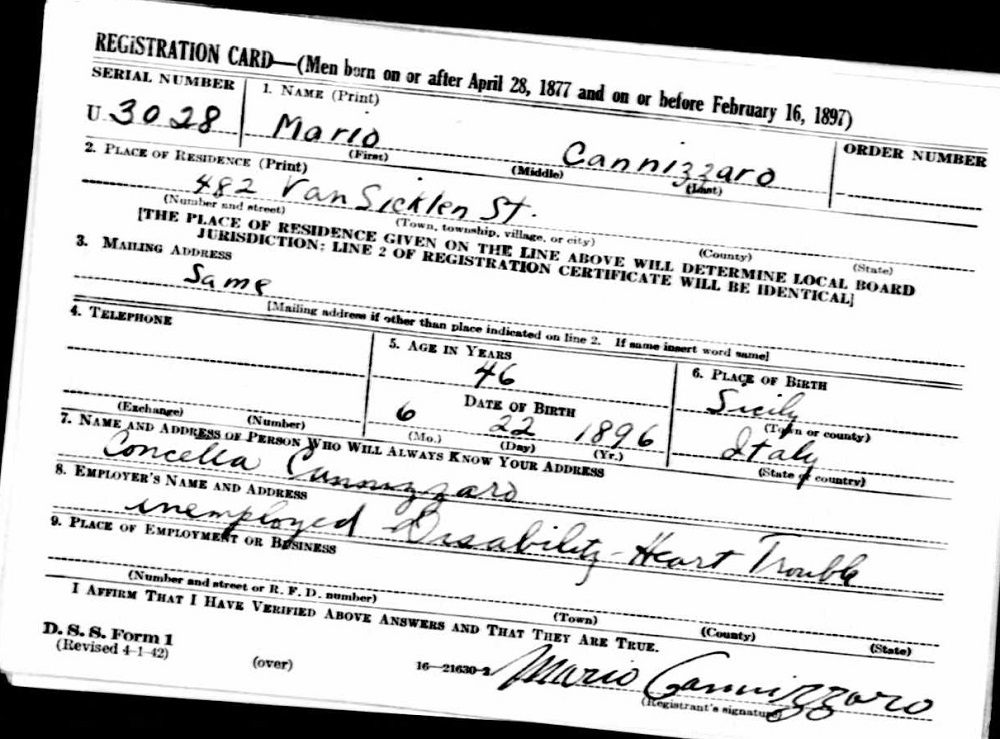 REGISTRATION CARD—(Men born on or after April 28, 1877 and on or before February 16, 1897)
SERIAL NUMBER
1. NAME (Print)
ORDER NUMBER
U 3028
Mario Cannizzaro
(First) (Middle) (Last)
2. PLACE OF RESIDENCE (Print)
482 Van Sicklen St.
(Number and street) (Town, township, village, or city) (County) (State)
[THE PLACE OF RESIDENCE GIVEN ON THE LINE ABOVE WILL DETERMINE LOCAL BOARD
JURISDICTION; LINE 2 OF REGISTRATION CERTIFICATE WILL BE IDENTICAL]
3. MAILING ADDRESS
Same
[Mailing address if other than place indicated on line 2. If same insert word same]
4. TELEPHONE
5. AGE IN YEARS
6. PLACE OF BIRTH
46
Sicily
DATE OF BIRTH
(Town or county)
6 22 1896
Italy
(Exchange) (Number)
(Mo.) (Day) (Yr.)
(State or country)
7. NAME AND ADDRESS OF PERSON WHO WILL ALWAYS KNOW YOUR ADDRESS
Concetta Cannizzaro
8. EMPLOYER'S NAME AND ADDRESS
unemployed - Disability - Heart Trouble
9. PLACE OF EMPLOYMENT OR BUSINESS
(Number and street or R. F. D. number) (Town) (County) (State)
I AFFIRM THAT I HAVE VERIFIED ABOVE ANSWERS AND THAT THEY ARE TRUE.
D. S. S. Form 1
(Revised 4-1-42) (over) 16—21630-2 Mario Cannizzaro
(Registrant's signature)